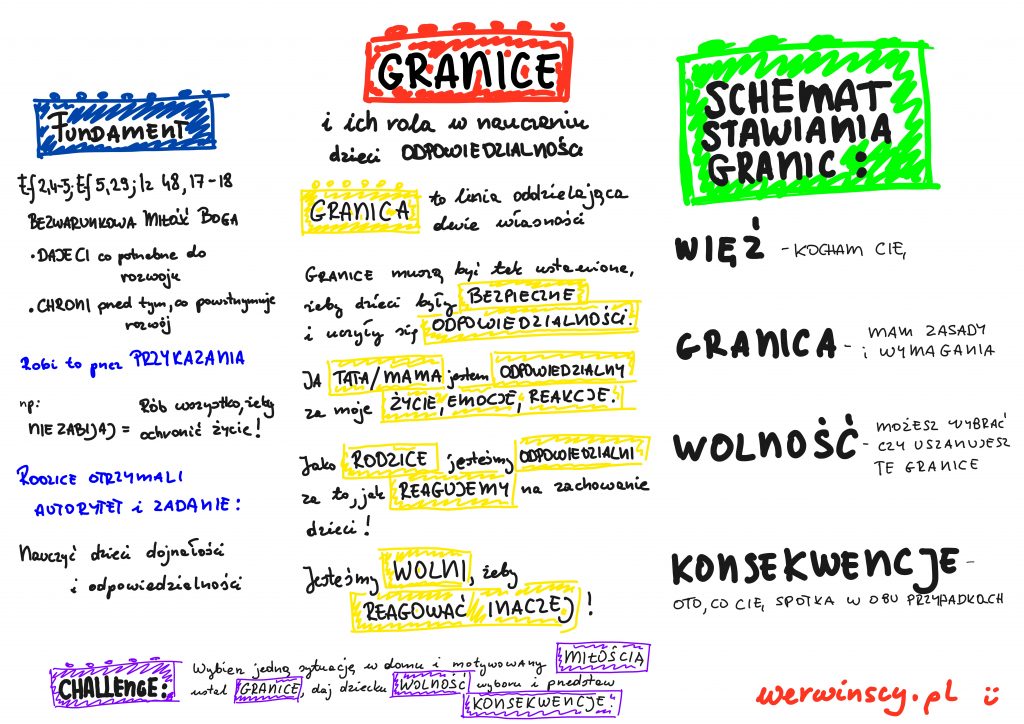 FUNDAMENT
Ef 2,4-5; Ef 5,29; Iz 48,17-18
BEZWARUNKOWA MIŁOŚĆ BOGA
• DAJE CI co potrzebne do
rozwoju
• CHRONI przed tym, co powstrzymuje
rozwój
Robi to przez PRZYKAZANIA
np:
NIE ZABIJAJ = Rób wszystko, żeby
ochronić życie!
RODZICE OTRZYMALI
AUTORYTET i ZADANIE:
Nauczyć dzieci dojrzałości
i odpowiedzialności
GRANICE
i ich rola w nauczaniu
dzieci ODPOWIEDZIALNOŚCI
GRANICA to linia oddzielająca
dwie własności
GRANICE muszą być tak ustawione,
żeby dzieci były BEZPIECZNE
i uczyły się ODPOWIEDZIALNOŚCI.
JA TATA/MAMA jestem ODPOWIEDZIALNY
za moje ŻYCIE, EMOCJE, REAKCJE.
Jako RODZICE jesteśmy ODPOWIEDZIALNI
za to, jak REAGUJEMY na zachowanie
dzieci!
Jesteśmy WOLNI, żeby
REAGOWAĆ INACZEJ!
SCHEMAT
STAWIANIA
GRANIC:
WIĘŹ - KOCHAM CIĘ,
GRANICA - MAM ZASADY
i WYMAGANIA
WOLNOŚĆ - MOŻESZ WYBRAĆ
CZY USZANUJESZ
TE GRANICE
KONSEKWENCJE -
OTO, CO CIĘ SPOTKA W OBU PRZYPADKACH
CHALLENGE:
Wybierz jedną sytuację w domu i motywowany MIŁOŚCIĄ
ustal GRANICE, daj dziecku WOLNOŚĆ wyboru i przedstaw
KONSEKWENCJE.
werwinscy.pl